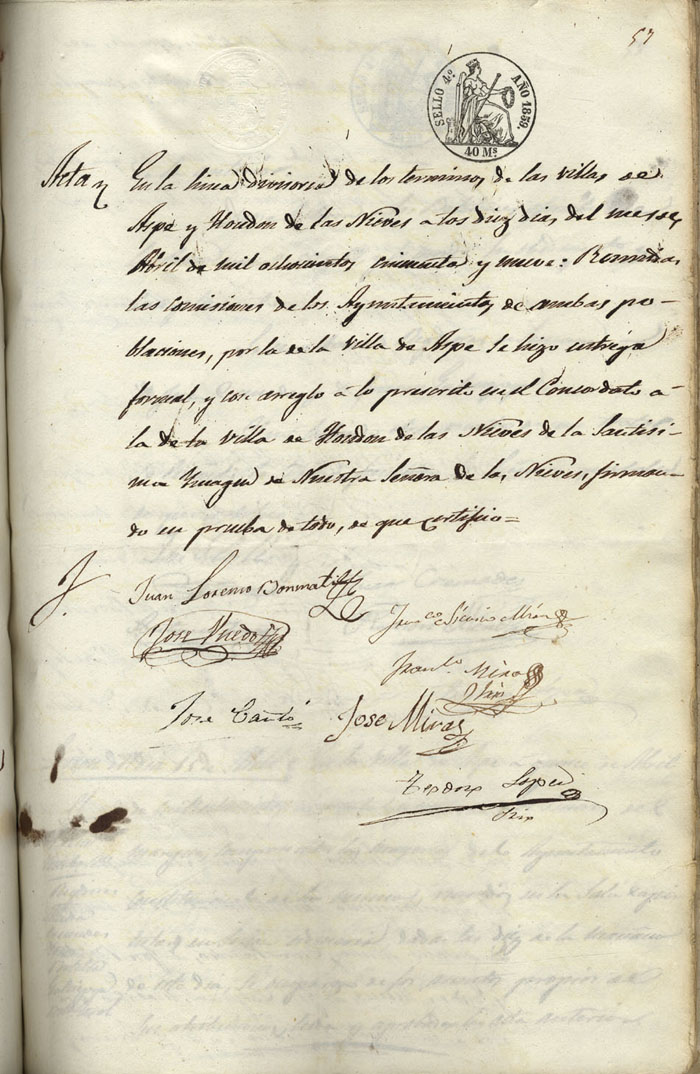 57
SELLO 4º AÑO 1859.
40 Ms
Acta
En la linea divisoria de los terminos de las villas de
Aspe y Hondon de las Nieves a los diez dias del mes de
Abril de mil ochocientos cincuenta y nueve: Reunidas
las comisiones de los Ayuntamientos de ambas po-
blaciones, por la de la villa de Aspe se hizo entrega
formal, y con arreglo á lo prescrito en el Concordato á
la de la villa de Hondon de las Nieves de la Santisi-
ma Ymagen de Nuestra Señora de las Nieves, firman-
do en prueba de todo, de que certifico=
Juan Lorenzo Bonmati
Franco Mira
Jose Puedo
Mira
Jose Cañto
Jose Miras
Teodoro Lopez
Srio